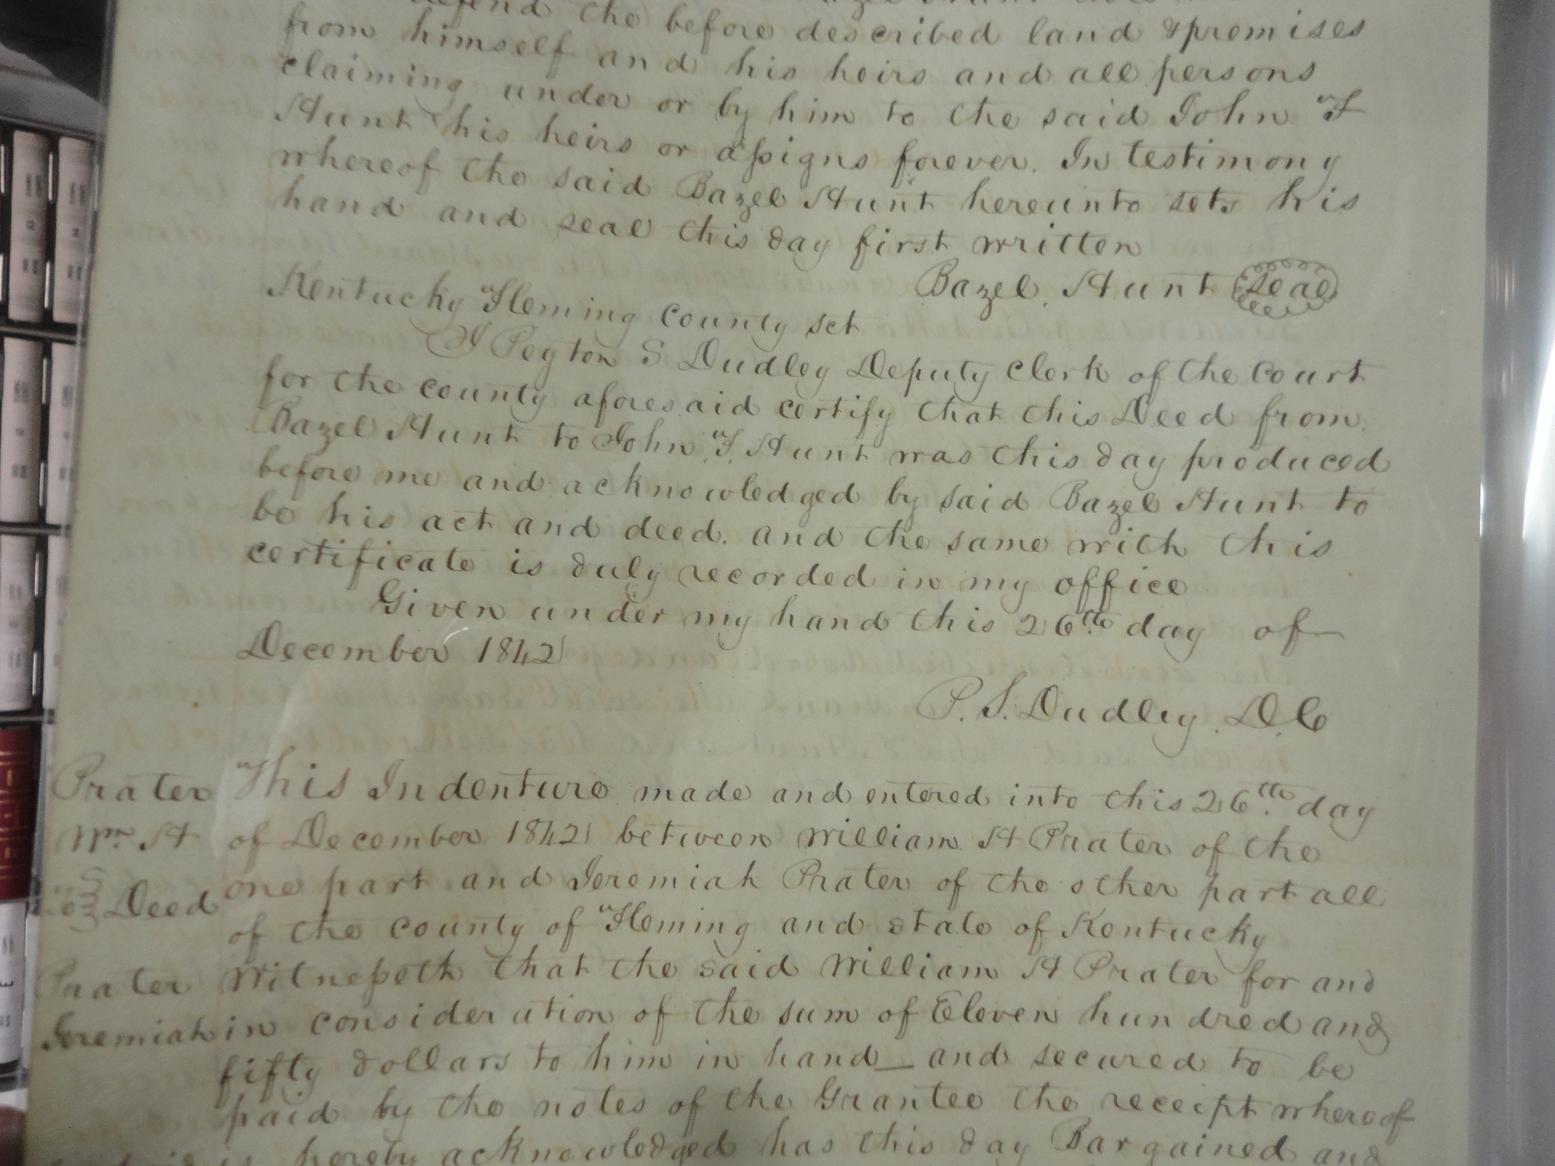 defend the before described land & premises
from himself and his heirs and all persons
claiming under or by him to the said John F
Hunt his heirs or assigns forever. In testimony
whereof the said Bazel Hunt hereunto sets his
hand and seal this day first written
Bazel Hunt Seal
Kentucky Fleming County sct
I Peyton S Dudley Deputy Clerk of the Court
for the county aforesaid certify that this Deed from
Bazel Hunt to John F. Hunt was this day produced
before me and acknowledged by said Bazel Hunt to
be his act and deed. and the same with this
certificate is duly recorded in my office
Given under my hand this 26th day of
December 1842
P. S. Dudley. D.C
Prater
Wm H
to } Deed
Prater
Jeremiah
This Indenture made and entered into this 26th day
of December 1842 between William H Prater of the
one part and Jeremiah Prater of the other part all
of the county of Fleming and state of Kentucky
Witnesseth that the said William H Prater for and
in consideration of the sum of Eleven hundred and
fifty dollars to him in hand — and secured to be
paid by the notes of the Grantee the receipt whereof
is hereby acknowledged has this day Bargained and